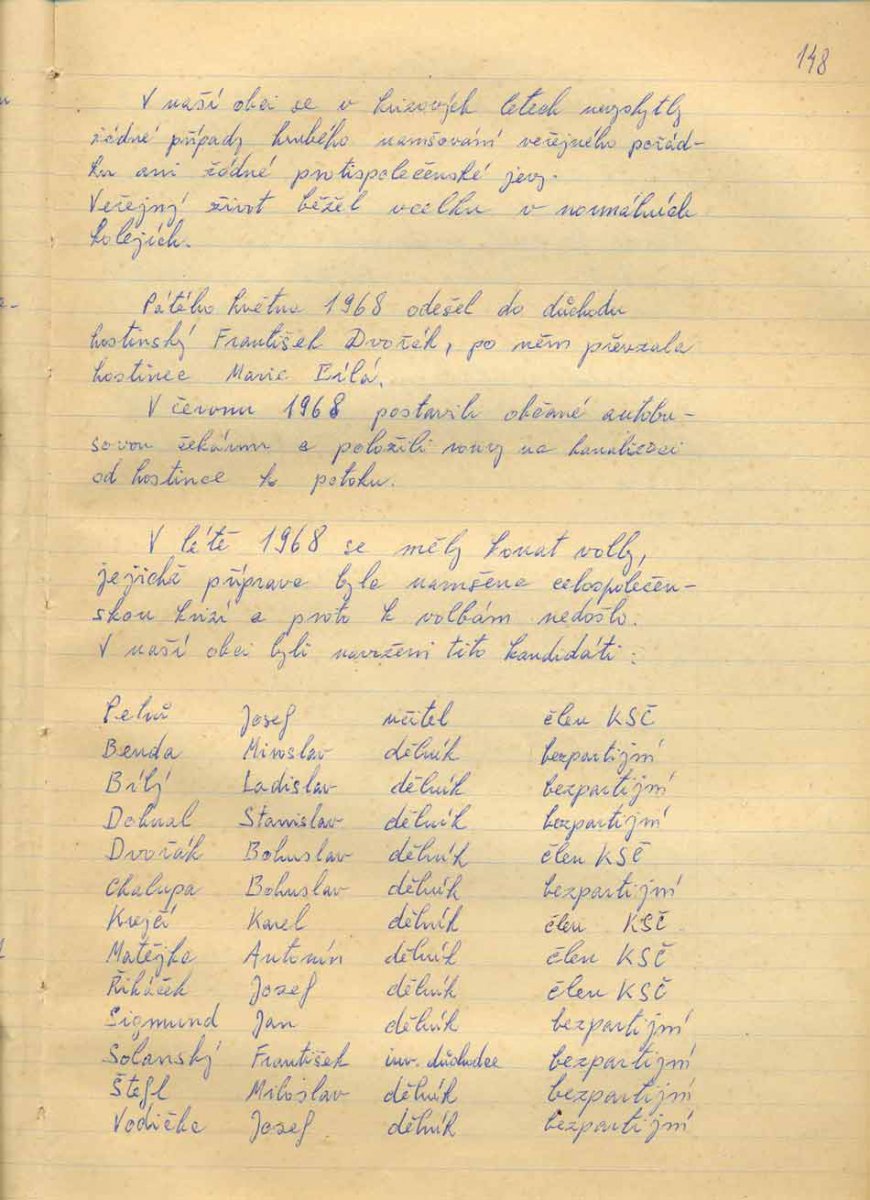 148
V naší obci se v krizových letech nevyskytly
žádné případy hrubého narušování veřejného pořád-
ku ani žádné protispolečenské jevy.
Veřejný život běžel vcelku v normálních
kolejích.
Pátého května 1968 odešel do důchodu
hostinský František Dvořák, po něm převzala
hostinec Marie Bílá.
V červnu 1968 postavili občané autobu-
sovou čekárnu a položili roury na kanalizaci
od hostince k potoku.
V létě 1968 se měly konat volby,
jejichž příprava byla narušena celospolečen-
skou krizí a proto k volbám nedošlo.
V naší obci byli navrženi tito kandidáti:
Petrů Josef učitel člen KSČ
Benda Miroslav dělník bezpartijní
Bílý Ladislav dělník bezpartijní
Dohnal Stanislav dělník bezpartijní
Dvořák Bohuslav dělník člen KSČ
Chalupa Bohuslav dělník bezpartijní
Krejčí Karel dělník člen KSČ
Matějka Antonín dělník člen KSČ
Řiháček Josef dělník člen KSČ
Sigmund Jan dělník bezpartijní
Solanský František inv. důchodce bezpartijní
Štegl Miloslav dělník bezpartijní
Vodička Josef dělník bezpartijní